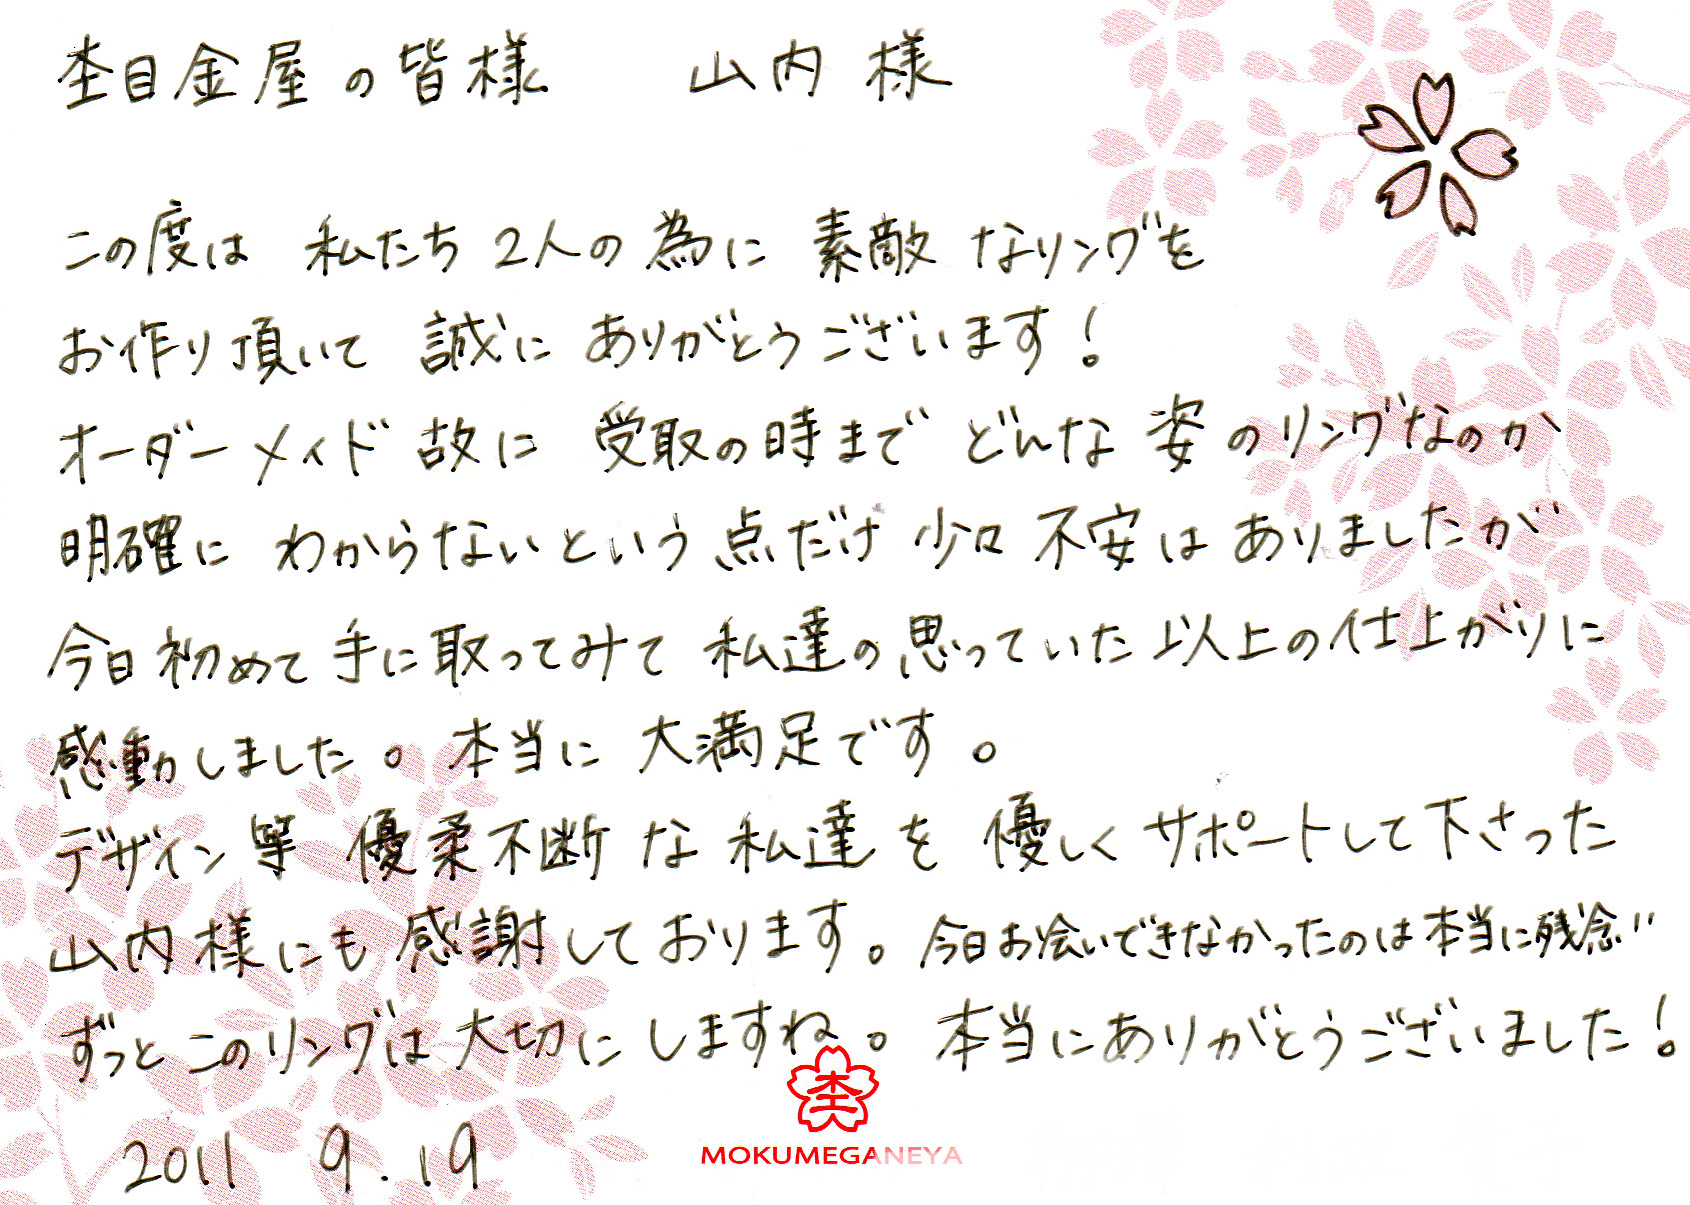 杢目金屋の皆様　山内様
この度は 私たち 2人の為に 素敵なリングを
お作り頂いて 誠に ありがとうございます！
オーダーメイド故に 受取の時まで どんな姿のリングなのか
明確に わからないという点だけ 少々 不安は ありましたが
今日初めて手に取ってみて 私達の思っていた以上の仕上がりに
感動しました。本当に 大満足です。
デザイン等 優柔不断な 私達を 優しくサポートして下さった
山内様にも感謝しております。今日お会いできなかったのは本当に残念‼
ずっとこのリングは大切にしますね。本当にありがとうございました！
杢
MOKUMEGANEYA
2011 9.19